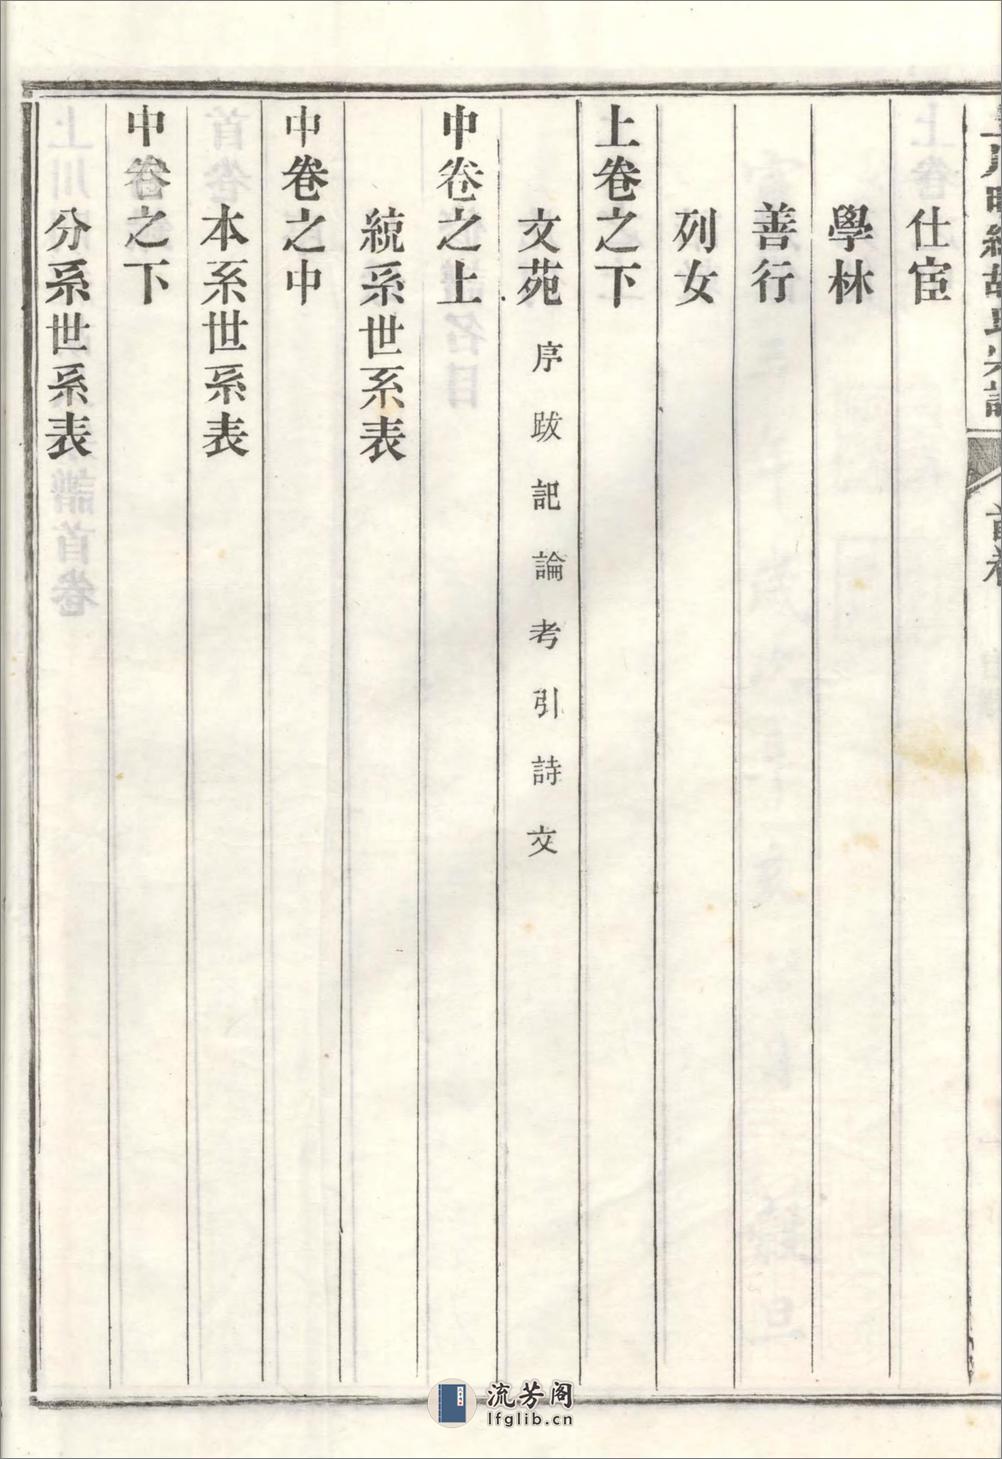 仕宦
學林
善行
列女
上卷之下
文苑 序跋記論考引詩文
中卷之上
統系世系表
中卷之中
本系世系表
中卷之下
分系世系表
首卷
流芳阁
lfglib.cn